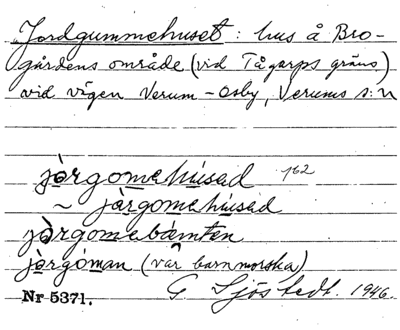 "Jordgummehuset": hus å Bro-
gårdens område (vid Tågarps gräns)
vid vägen Verum - Osby, Verums s:n
jòrgomehúsad 162
~ jàrgomehúsad
jòrgomebàmten
jòrgóman (var barnmorska)
Nr 5371. G. Sjöstedt. 1946.